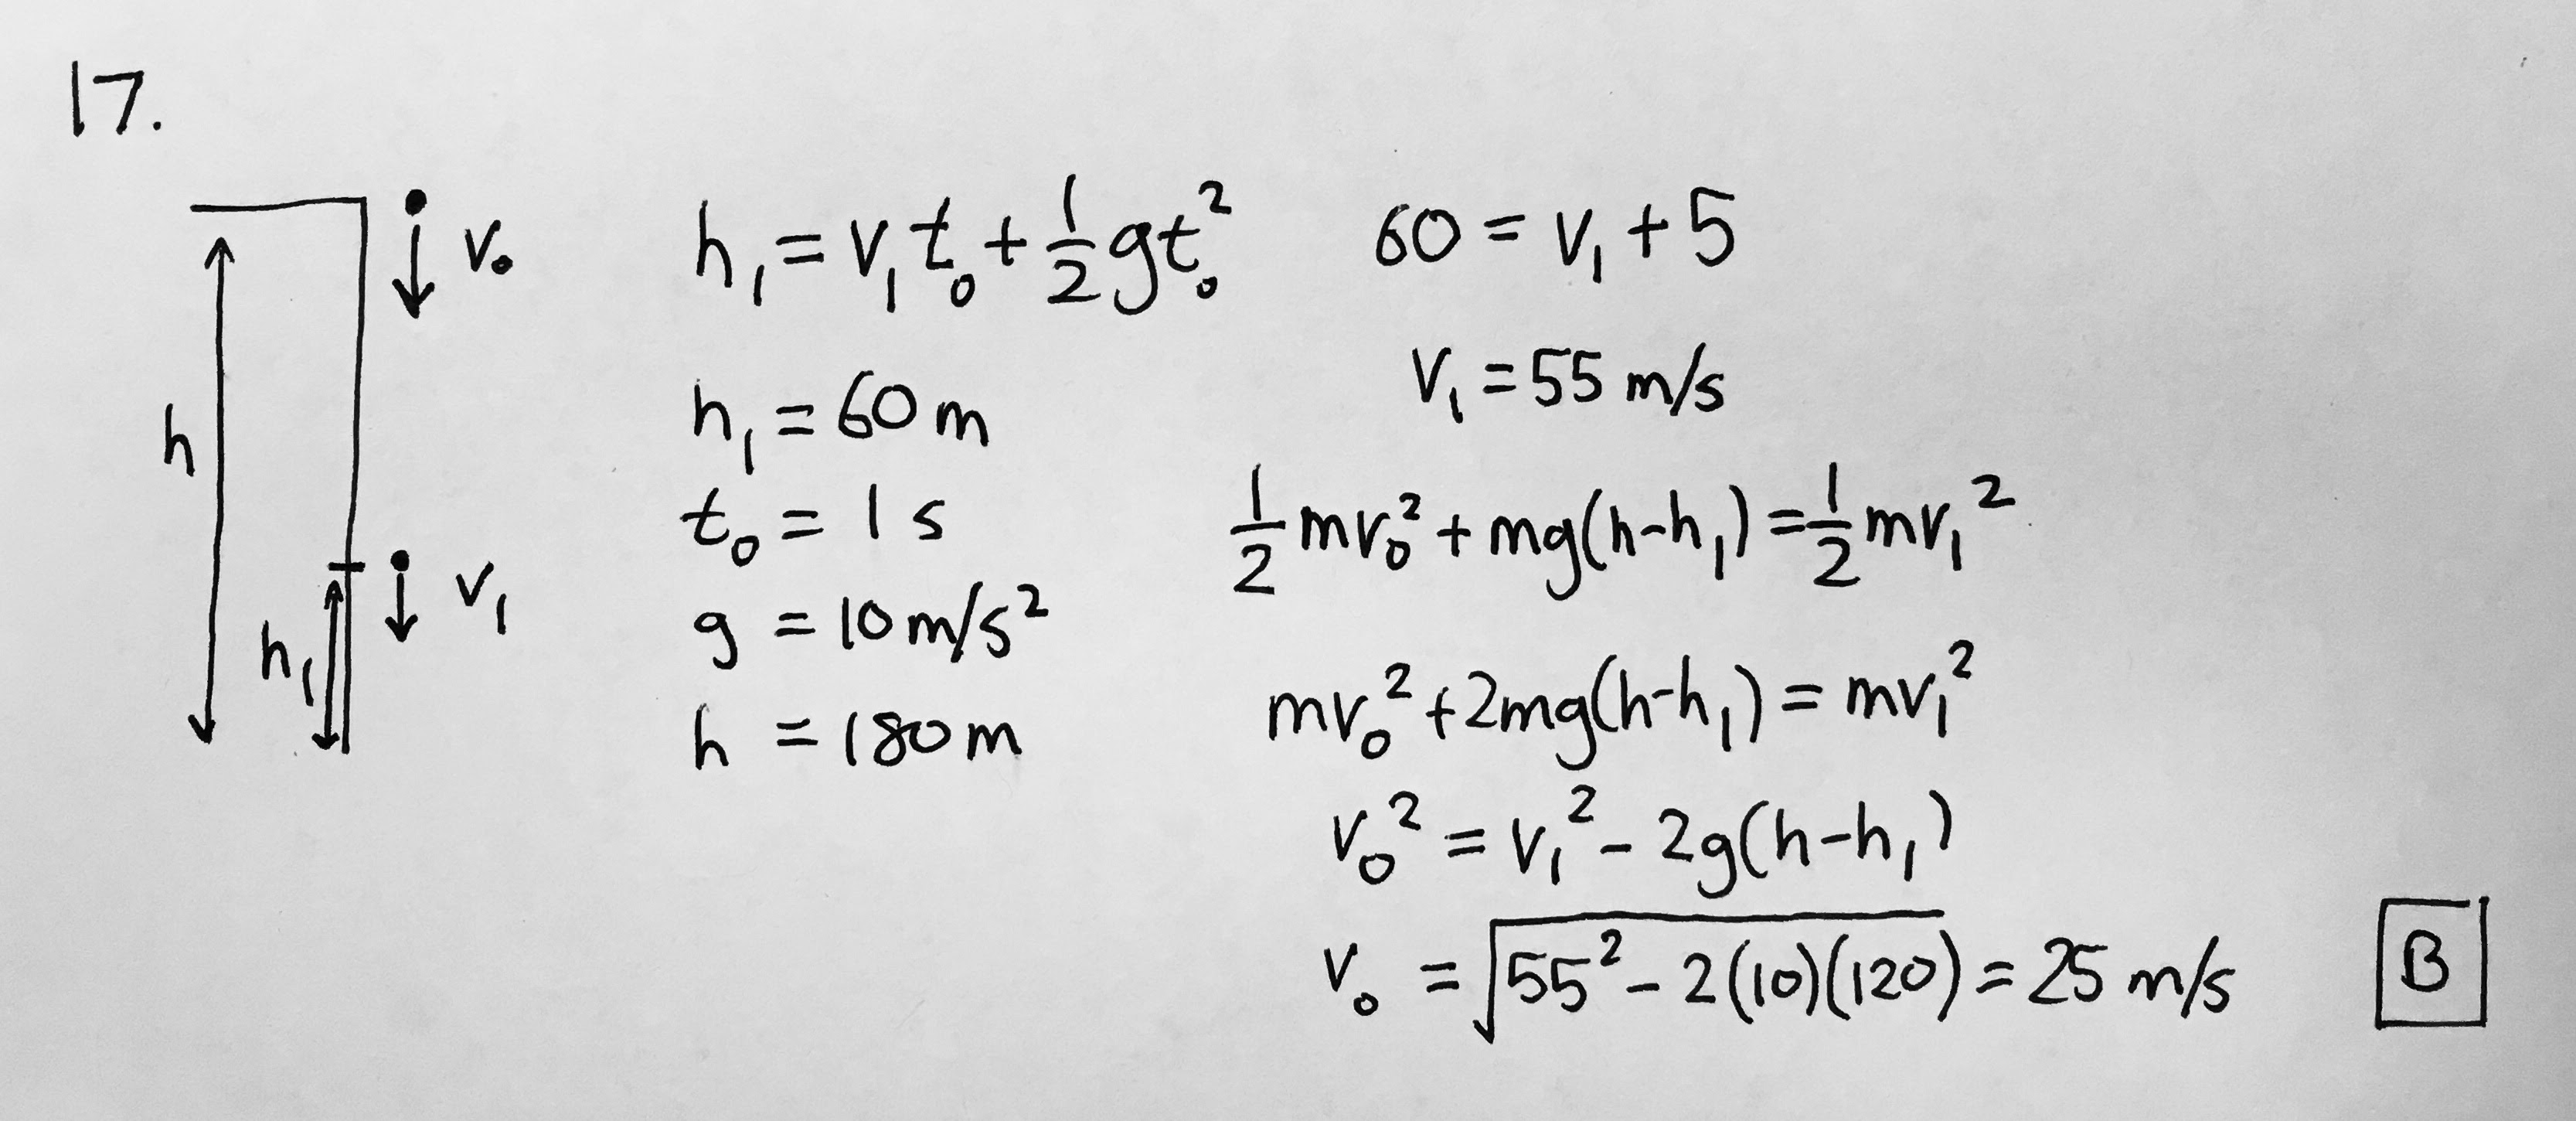 17.
v₀
h
v₁
h₁
h₁ = v₁t₀ + ½gt₀²
h₁ = 60 m
t₀ = 1 s
g = 10 m/s²
h = 180 m
60 = v₁ + 5
v₁ = 55 m/s
½mv₀² + mg(h-h₁) = ½mv₁²
mv₀² + 2mg(h-h₁) = mv₁²
v₀² = v₁² - 2g(h-h₁)
v₀ = √(55² - 2(10)(120)) = 25 m/s
B